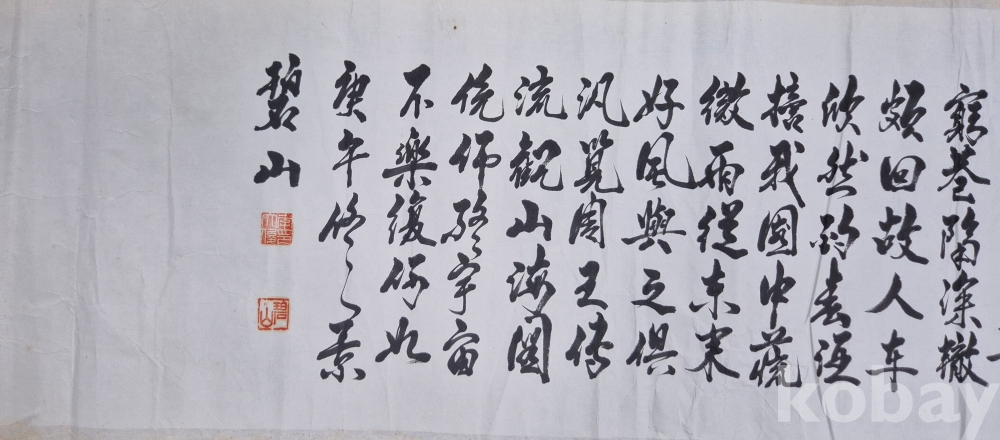 窮巷隔深轍
頗回故人车
欣然酌春
摘我園中蔬
微雨從东来
好風與之俱
汎覽周王傳
流觀山海圖
俛仰終宇宙
不樂復何如
庚午 景
碧山
碧山
kobay